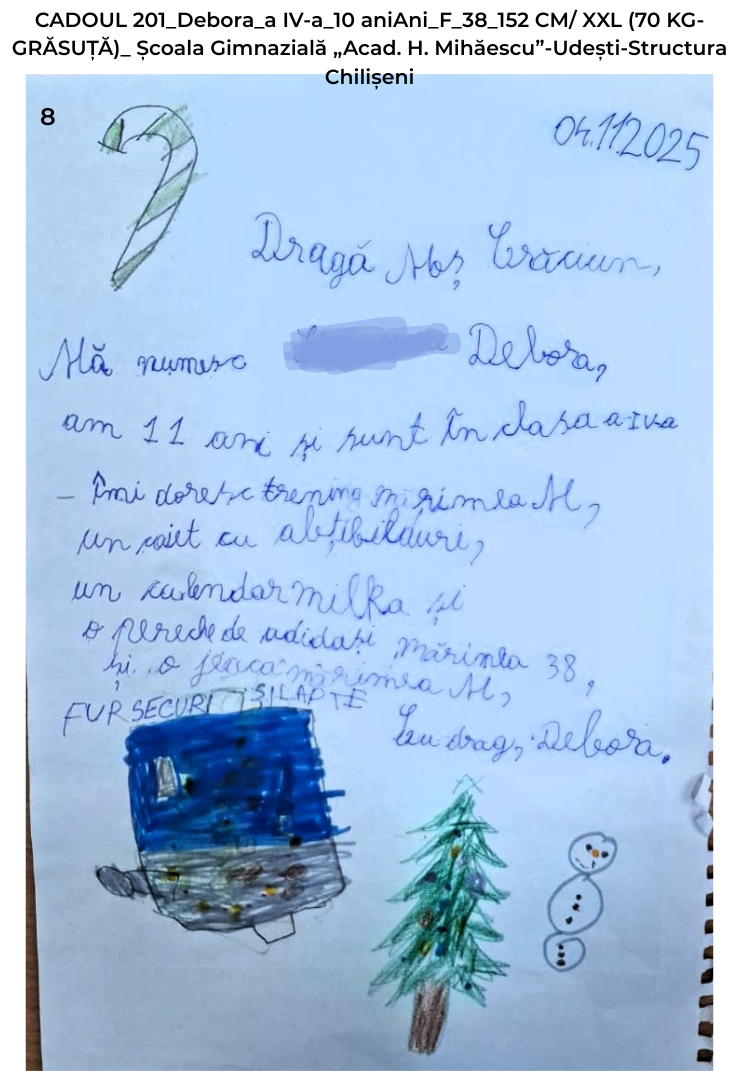 CADOUL 201_Debora_a IV-a_10 aniAni_F_38_152 CM/ XXL (70 KG-
GRĂSUȚĂ)_ Școala Gimnazială „Acad. H. Mihăescu”-Udești-Structura
Chilișeni
8
04.11.2025
Dragă Moș Crăciun,
Mă numesc Debora,
am 11 ani și sunt în clasa a-IV-a
– Îmi doresc trening mărimea M,
un caiet cu abțibilduri,
un calendar milka și
o pereche de adidași mărimea 38,
și o jeacă mărimea M,
FURSECURI ȘI LAPTE
Cu drag, Debora.